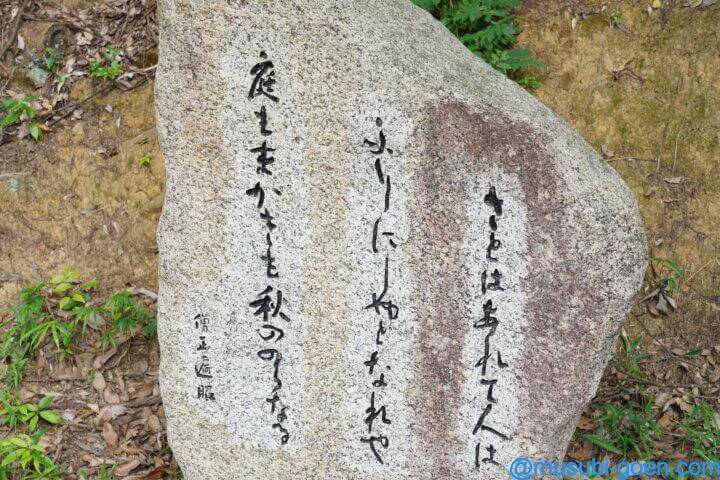 さとはあれて人は
ふりにしやとなれや
庭もまかきも秋ののらなる
僧正遍昭
@musubi-goen.com